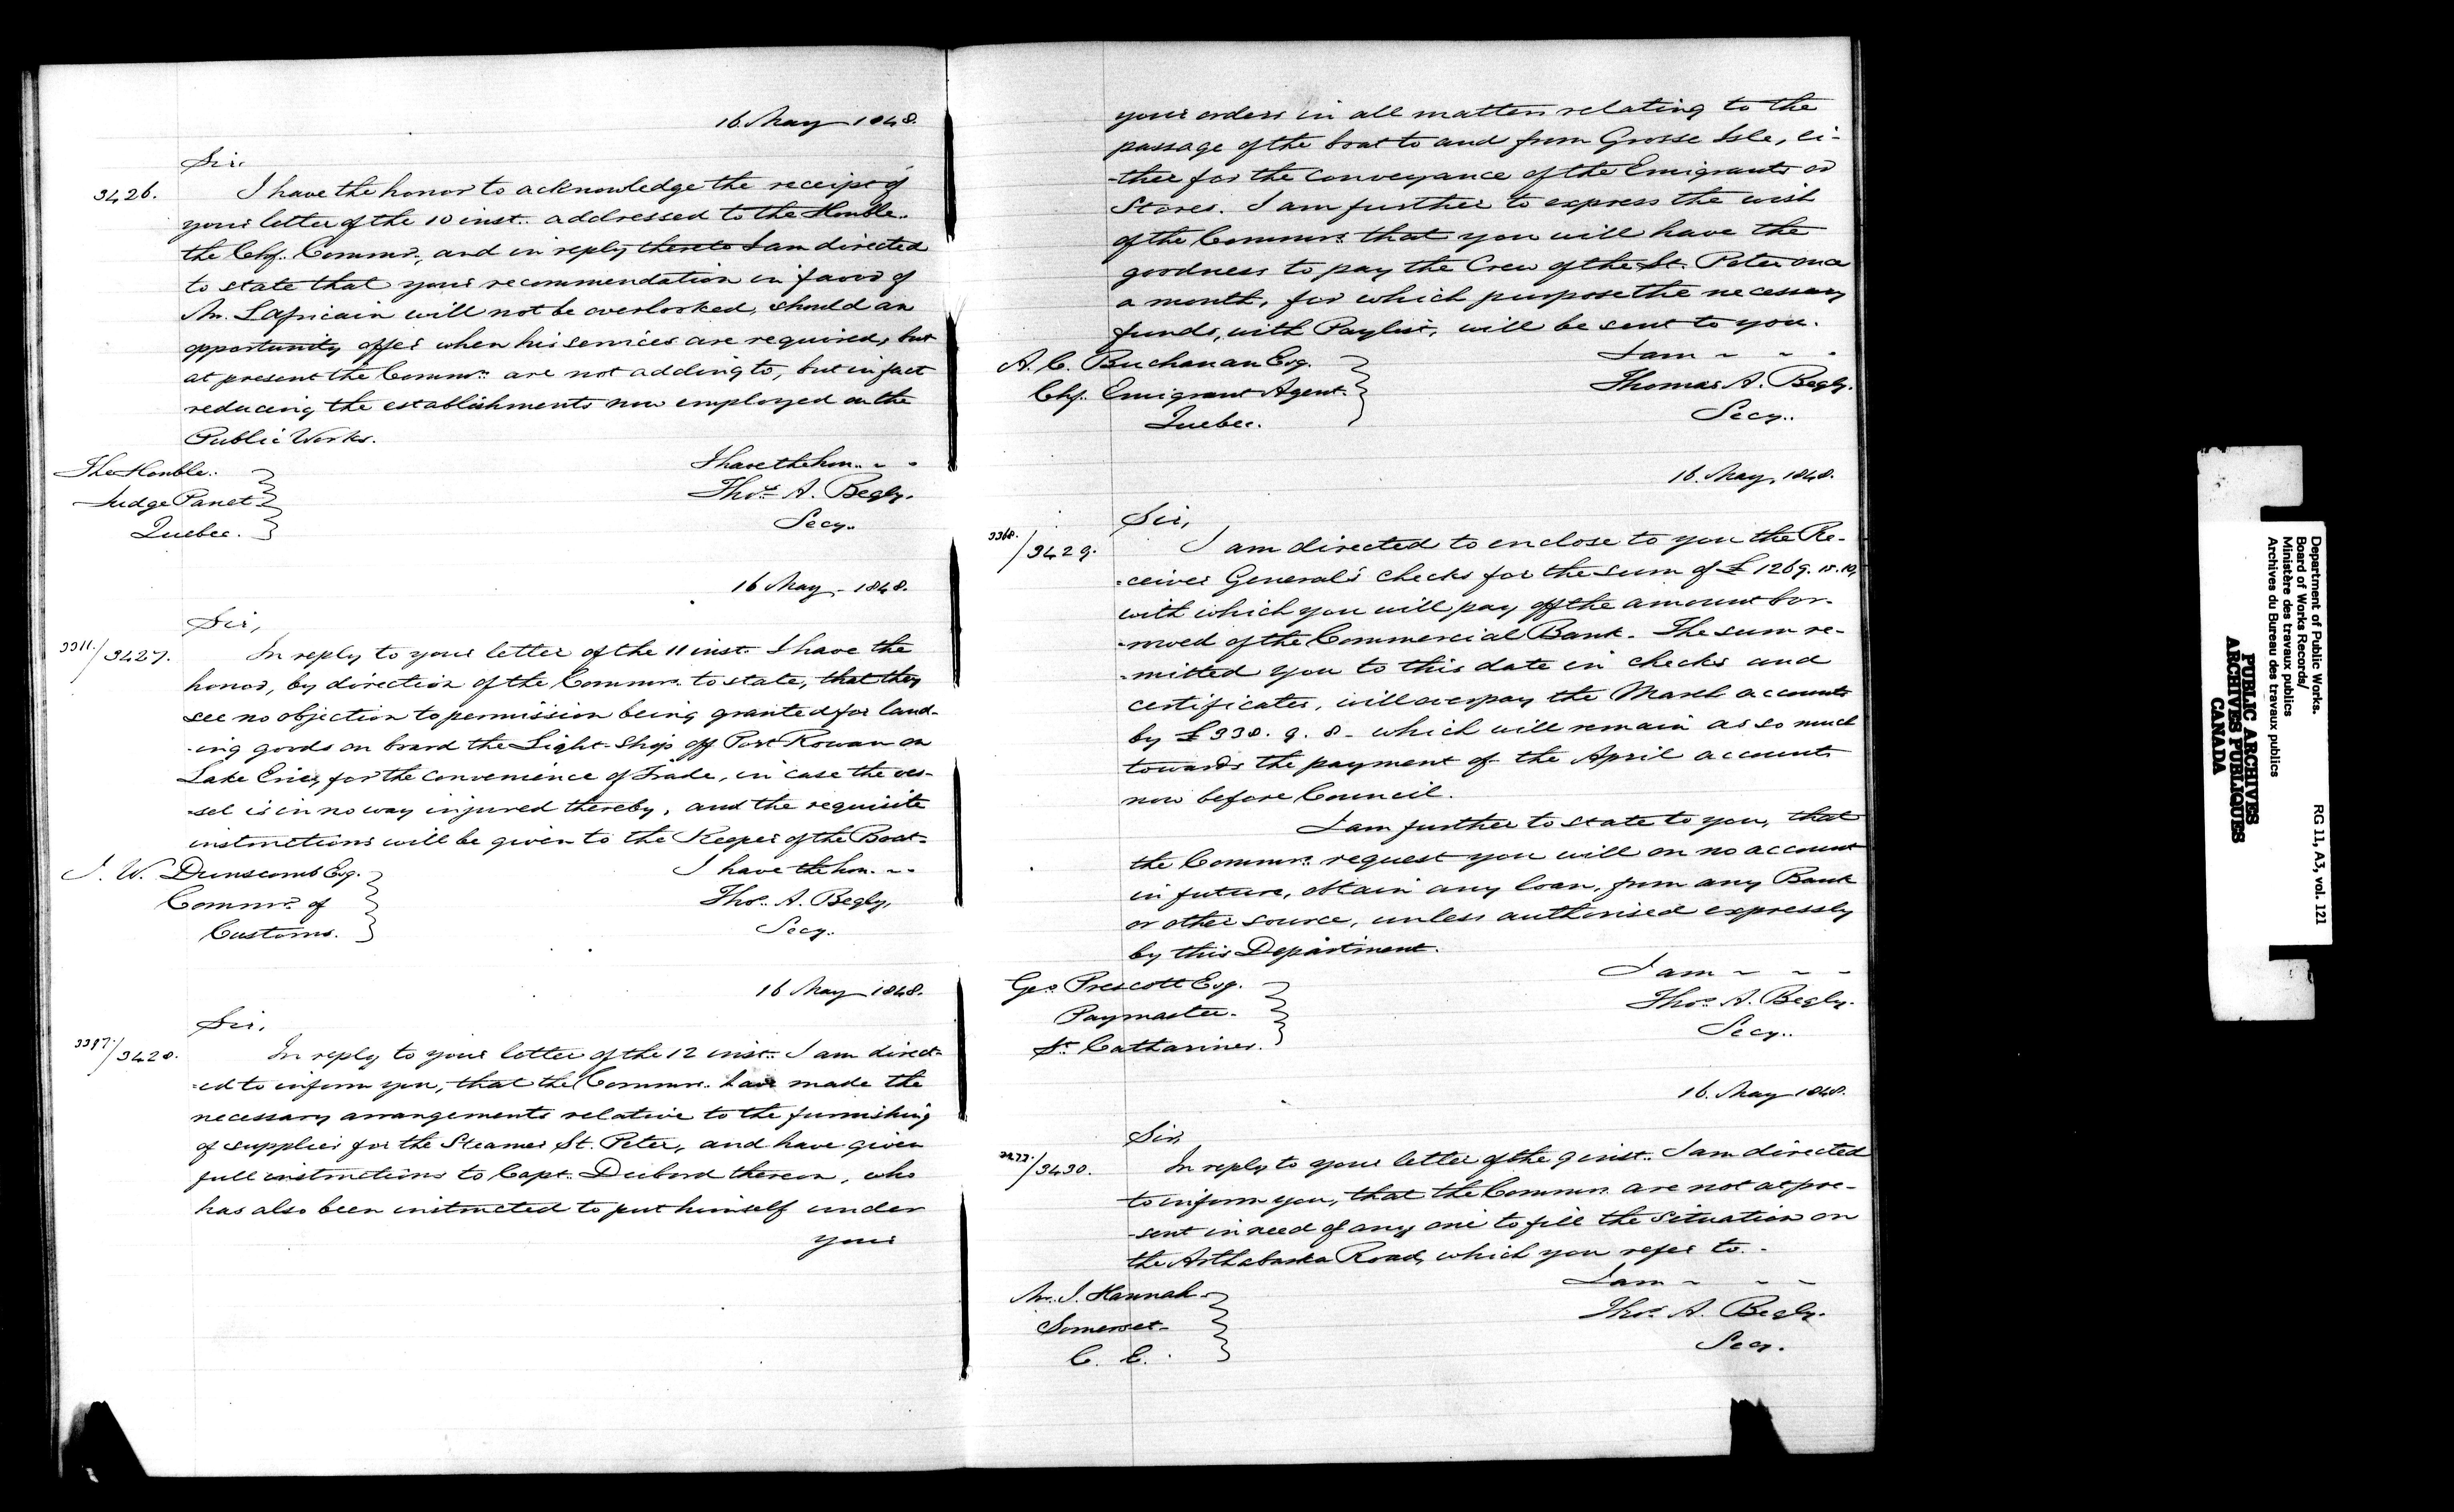 16. May 1848.
Sir.
3426.
I have the honor to acknowledge the receipt of
your letter of the 10 inst. addressed to the Honble.
the Chf. Commr., and in reply thereto I am directed
to state that your recommendation in favor of
Mr. Lapricain will not be overlooked, should an
opportunity offer when his services are required, but
at present the Commrs. are not adding to, but in fact
reducing the establishments now employed on the
Public Works.
I have the hon. - -
The Honble.
Judge Panet
Quebec.
Thos. A. Begly.
Secy.
16 May - 1848.
Sir,
3311./3427.
In reply to your letter of the 11 inst. I have the
honor, by direction of the Commrs. to state, that they
see no objection to permission being granted for land-
-ing goods on board the Light-Ship off Port Rowan on
Lake Erie, for the convenience of Trade, in case the ves-
-sel is in no way injured thereby, and the requisite
instructions will be given to the Keeper of the Boat-
I have the hon. - -
J. W. Dunscomb Esq.
Commr. of
Customs.
Thos. A. Begly,
Secy.
16 May 1848.
Sir,
/3428.
In reply to your letter of the 12 inst. I am direct-
-ed to inform you, that the Commrs. have made the
necessary arrangements relative to the furnishing
of supplies for the Steamer St. Peter, and have given
full instructions to Capt. Dubord thereon, who
has also been instructed to put himself under
your
your orders in all matters relating to the
passage of the boat to and from Grosse Isle, ei-
-ther for the conveyance of the Emigrants or
Stores. I am further to express the wish
of the Commrs. that you will have the
goodness to pay the Crew of the St. Peter once
a month, for which purpose the necessary
funds, with Paylist, will be sent to you.
I am - - -
A. C. Buchanan Esq.
Chf. Emigrant Agent.
Quebec.
Thomas A. Begly.
Secy.
16. May, 1848.
Sir,
3368./3429.
I am directed to enclose to you the Re-
-ceiver General's checks for the sum of £1269. 15. 10,
with which you will pay off the amount bor-
-rowed of the Commercial Bank. The sum re-
-mitted you to this date in checks and
certificates, will overpay the March accounts
by £338. 9. 8 - which will remain as so much
towards the payment of the April accounts
now before Council.
I am further to state to you, that
the Commrs. request you will on no account
in future, obtain any loan, from any Bank
or other source, unless authorised expressly
by this Department.
I am - - -
Geo. Prescott Esq.
Paymaster.
St. Catharines.
Thos. A. Begly.
Secy.
16. May 1848.
Sir,
/3430.
In reply to your letter of the 9 inst. I am directed
to inform you, that the Commrs. are not at pre-
-sent in need of any one to fill the situation on
the Arthabaska Road, which you refer to. -
I am - - -
Mr. J. Hannah
Somerset
C. E.
Thos. A. Begly.
Secy.
Department of Public Works.
Board of Works Records/
Ministère des travaux publics
Archives du Bureau des travaux publics
RG 11, A3, vol. 121
PUBLIC ARCHIVES
ARCHIVES PUBLIQUES
CANADA